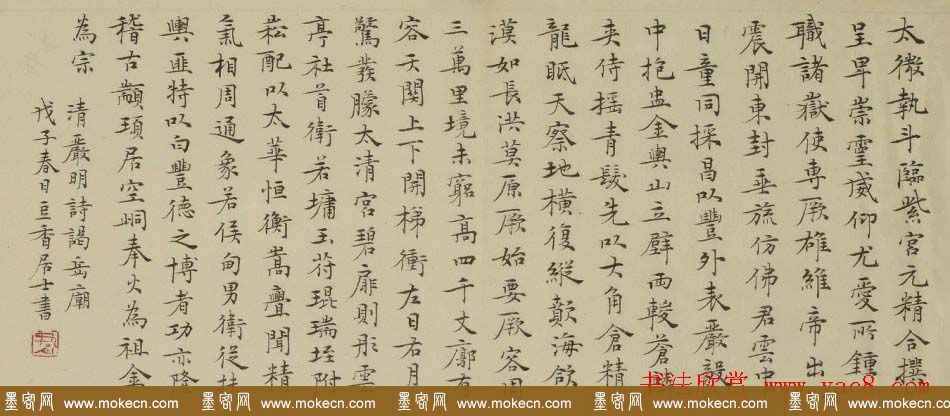 太微執斗臨紫宮元精合撰
呈卑崇靈威仰尤愛所鍾
職諸嶽使專厥雄維帝出
震開東封垂旒仿佛君雲中
日童同採昌以豐外表嚴毅
中抱盅金輿山立壁兩轂蒼
夾侍搖青鬆先以大角倉精
龍眂天察地橫復縱顛海飲
漠如長洪莫原厥始要厥容
三萬里境未窮高四千丈廓有
容天關上下開梯衝左日右月
驚發朦太清宮碧扉則彤雲
亭社首衛若墉玉符琨瑞垤附
菘配以太華恒衡嵩疊聞精
氣相周通象若侯甸男衛從
輿匪特以白豐德之博者功亦隆
稽古顓頊居空峒奉火為祖金
為宗
清嚴明詩謁岳廟
戊子春日亘香居士書
墨客网 www.mokecn.com 墨客网 www.mokecn.com 墨客网 www.mokecn.com 墨客网 www.mokecn.com
书法欣赏 www.yac8.com